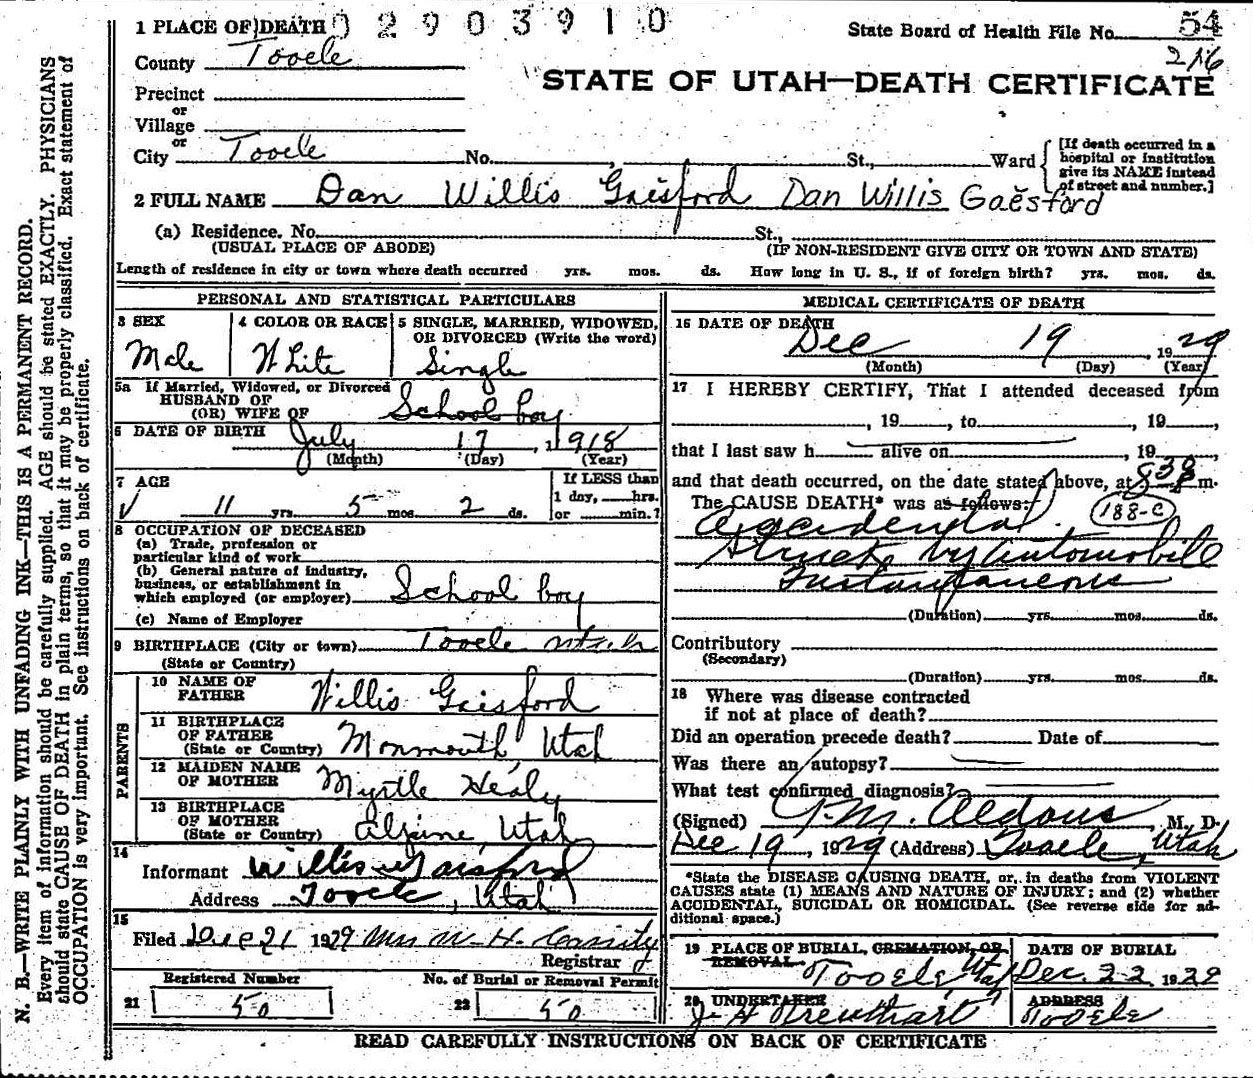 1 PLACE OF DEATH 02903910
State Board of Health File No. 54
County Tooele
216
STATE OF UTAH—DEATH CERTIFICATE
Precinct
or
Village
or
City Tooele No. , St., Ward
[If death occurred in a
hospital or institution
give its NAME instead
of street and number.]
2 FULL NAME Dan Willis Gaisford Dan Willis Gaesford
(a) Residence. No. St.,
(USUAL PLACE OF ABODE) (IF NON-RESIDENT GIVE CITY OR TOWN AND STATE)
Length of residence in city or town where death occurred yrs. mos. ds. How long in U. S., if of foreign birth? yrs. mos. ds.
PERSONAL AND STATISTICAL PARTICULARS
3 SEX
Male
4 COLOR OR RACE
White
5 SINGLE, MARRIED, WIDOWED,
OR DIVORCED (Write the word)
Single
5a If Married, Widowed, or Divorced
HUSBAND OF
(OR) WIFE OF School boy
6 DATE OF BIRTH July 17, 1918
(Month) (Day) (Year)
7 AGE
11 yrs. 5 mos. 2 ds.
If LESS than
1 day, hrs.
or min.?
8 OCCUPATION OF DECEASED
(a) Trade, profession or
particular kind of work
(b) General nature of industry,
business, or establishment in
which employed (or employer) School boy
(c) Name of Employer
9 BIRTHPLACE (City or town) Tooele Utah
(State or Country)
PARENTS
10 NAME OF
FATHER Willis Gaisford
11 BIRTHPLACE
OF FATHER
(State or Country) Monmouth, Utah
12 MAIDEN NAME
OF MOTHER Myrtle Healy
13 BIRTHPLACE
OF MOTHER
(State or Country) Alpine, Utah
14
Informant Willis Gaisford
Address Tooele, Utah
15
Filed Dec 21 1929 Mrs W. H. Cassity
Registrar
Registered Number No. of Burial or Removal Permit
21 50 22 50
MEDICAL CERTIFICATE OF DEATH
16 DATE OF DEATH
Dec 19, 1929
(Month) (Day) (Year)
17 I HEREBY CERTIFY, That I attended deceased from
, 19 , to , 19 ,
that I last saw h alive on , 19
and that death occurred, on the date stated above, at 8 30 P m.
The CAUSE DEATH* was as follows:
188-c
Accidental
Struck by Automobile
Instantaneous
(Duration) yrs. mos. ds.
Contributory
(Secondary)
(Duration) yrs. mos. ds.
18 Where was disease contracted
if not at place of death?
Did an operation precede death? Date of
Was there an autopsy?
What test confirmed diagnosis?
(Signed) J. M. Aldous, M. D.
Dec 19, 1929 (Address) Tooele, Utah
*State the DISEASE CAUSING DEATH, or, in deaths from VIOLENT
CAUSES state (1) MEANS AND NATURE OF INJURY; and (2) whether
ACCIDENTAL, SUICIDAL OR HOMICIDAL. (See reverse side for ad-
ditional space.)
19 PLACE OF BURIAL, CREMATION, OR
REMOVAL Tooele, Utah
DATE OF BURIAL
Dec. 22 1929
20 UNDERTAKER
ADDRESS
Tooele
READ CAREFULLY INSTRUCTIONS ON BACK OF CERTIFICATE
N. B.—WRITE PLAINLY WITH UNFADING INK—THIS IS A PERMANENT RECORD.
Every item of information should be carefully supplied. AGE should be stated EXACTLY. PHYSICIANS
should state CAUSE OF DEATH in plain terms, so that it may be properly classified. Exact statement of
OCCUPATION is very important. See instructions on back of certificate.